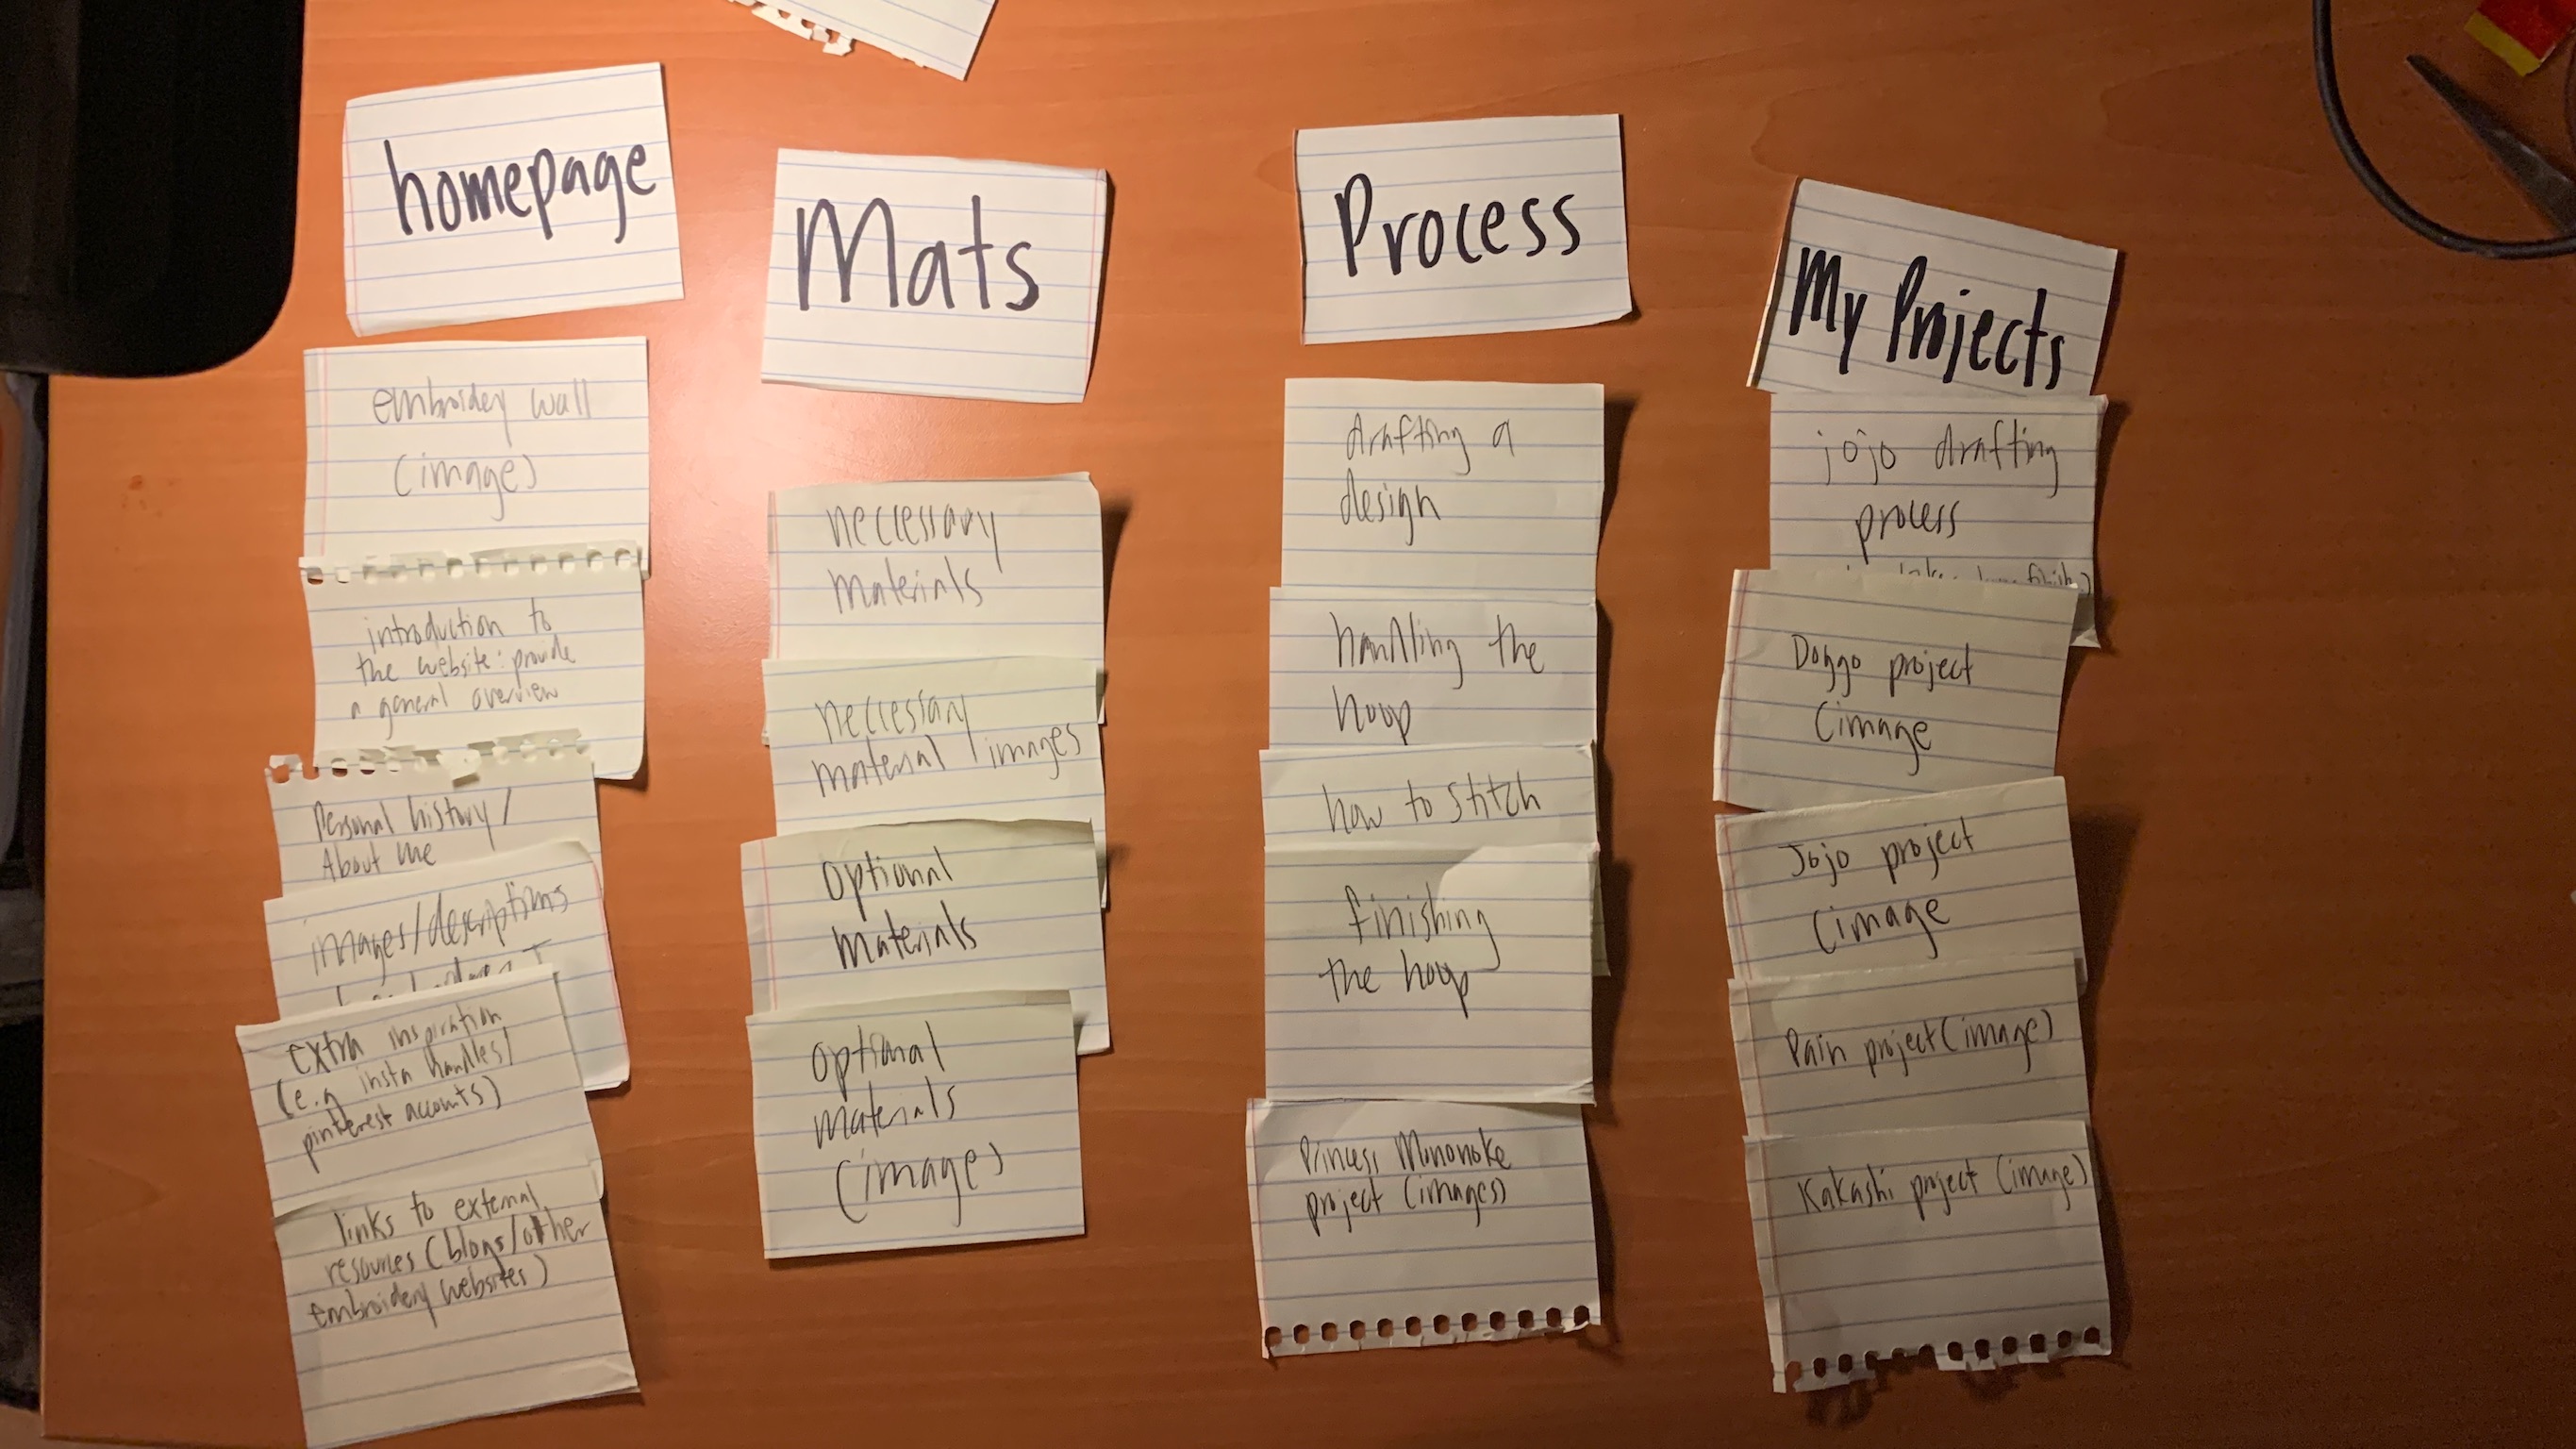 homepage
embroidery wall
(image)
introduction to
the website: provide
a general overview
Personal history/
About me
images/descriptions
extra inspiration
(e.g insta handles/
pinterest accounts)
links to external
resources (blogs/other
embroidery websites)
Mats
neccessary
materials
neccessary
material images
optional
materials
optional
materials
(image)
Process
drafting a
design
handling the
hoop
how to stitch
finishing
the hoop
Princess Mononoke
project (images)
My Projects
jojo drafting
process
finish)
Doggo project
(image
Jojo project
(image
Pain project (image)
Kakashi project (image)